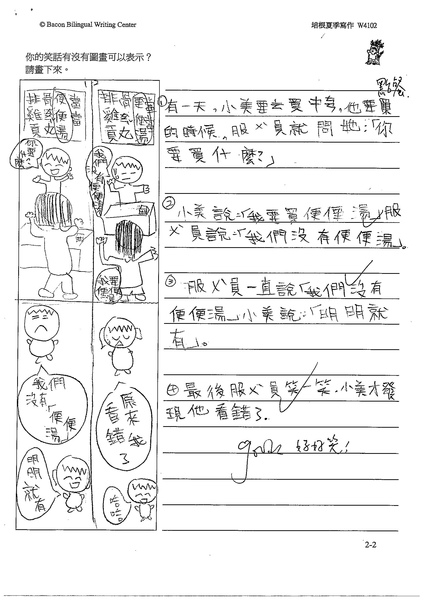 © Bacon Bilingual Writing Center
培根夏季寫作 W4102
你的笑話有沒有圖畫可以表示？
請畫下來。
①有一天，小美要去買中午，也要買
的時候，服ㄨ員就問她：「你
要買什麼？」
②小美說：「我要買便便湯」服
ㄨ員說：「我們沒有便便湯」。
③服ㄨ員一直說「我們沒有
便便湯」小美說：「明明就
有」。
④最後服ㄨ員笑一笑，小美才發
現他看錯了。
good 好好笑！
排骨便當
雞丸便當
貢湯
你要買什麼？
排骨便當
雞丸便當
貢湯
我們沒有便便湯
我們沒有「便便湯」
明明就有
原來我看錯了
哈哈。
2-2